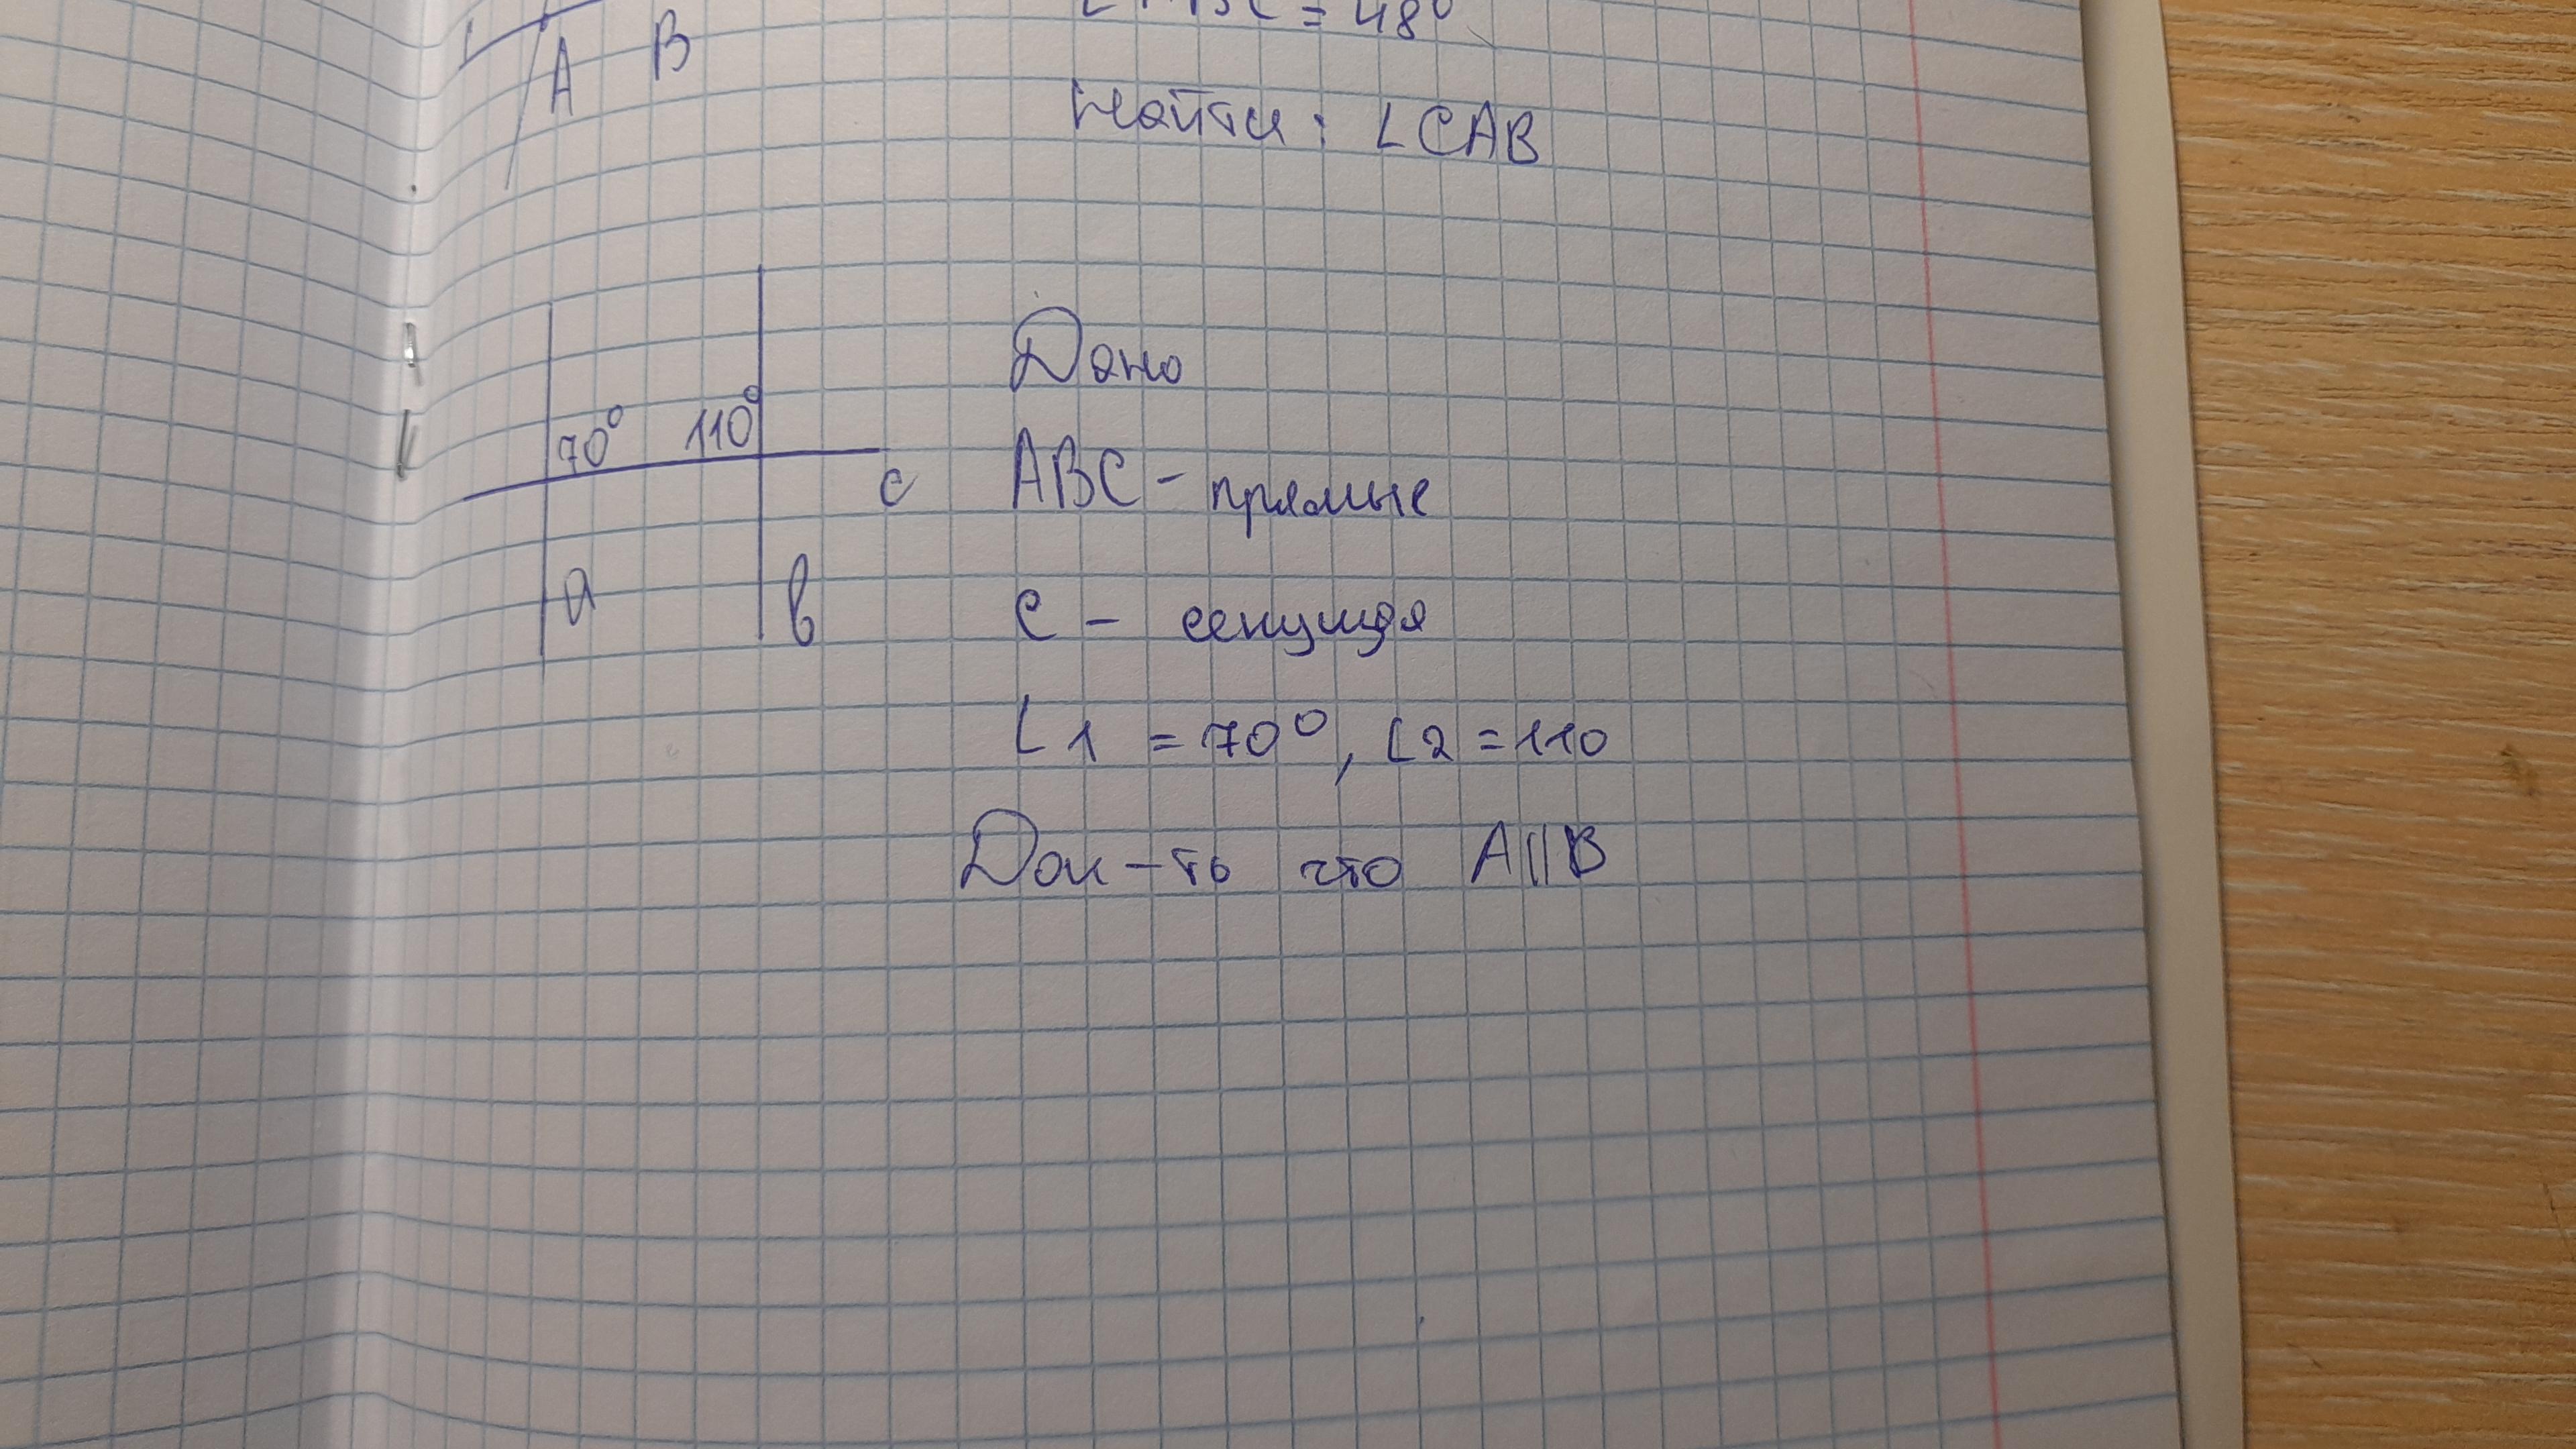 A B
= 48°
Найти: ∠CAB
70° 110°
c
a
b
Дано
ABC - прямые
C - секущая
∠1 = 70°, ∠2 = 110
Док-ть что A||B